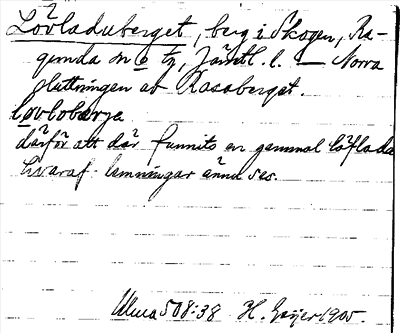 Lövladuberget, berg i Skogen, Ra-
gunda sn o tg, Jämtl. l. — Norra
sluttningen av Rasaberget.
lǫvlobærje
därför att där funnits en gammal löflada
hvaraf lämningar ännu ses.
Ulma 508:38 H. Geijer 1905.